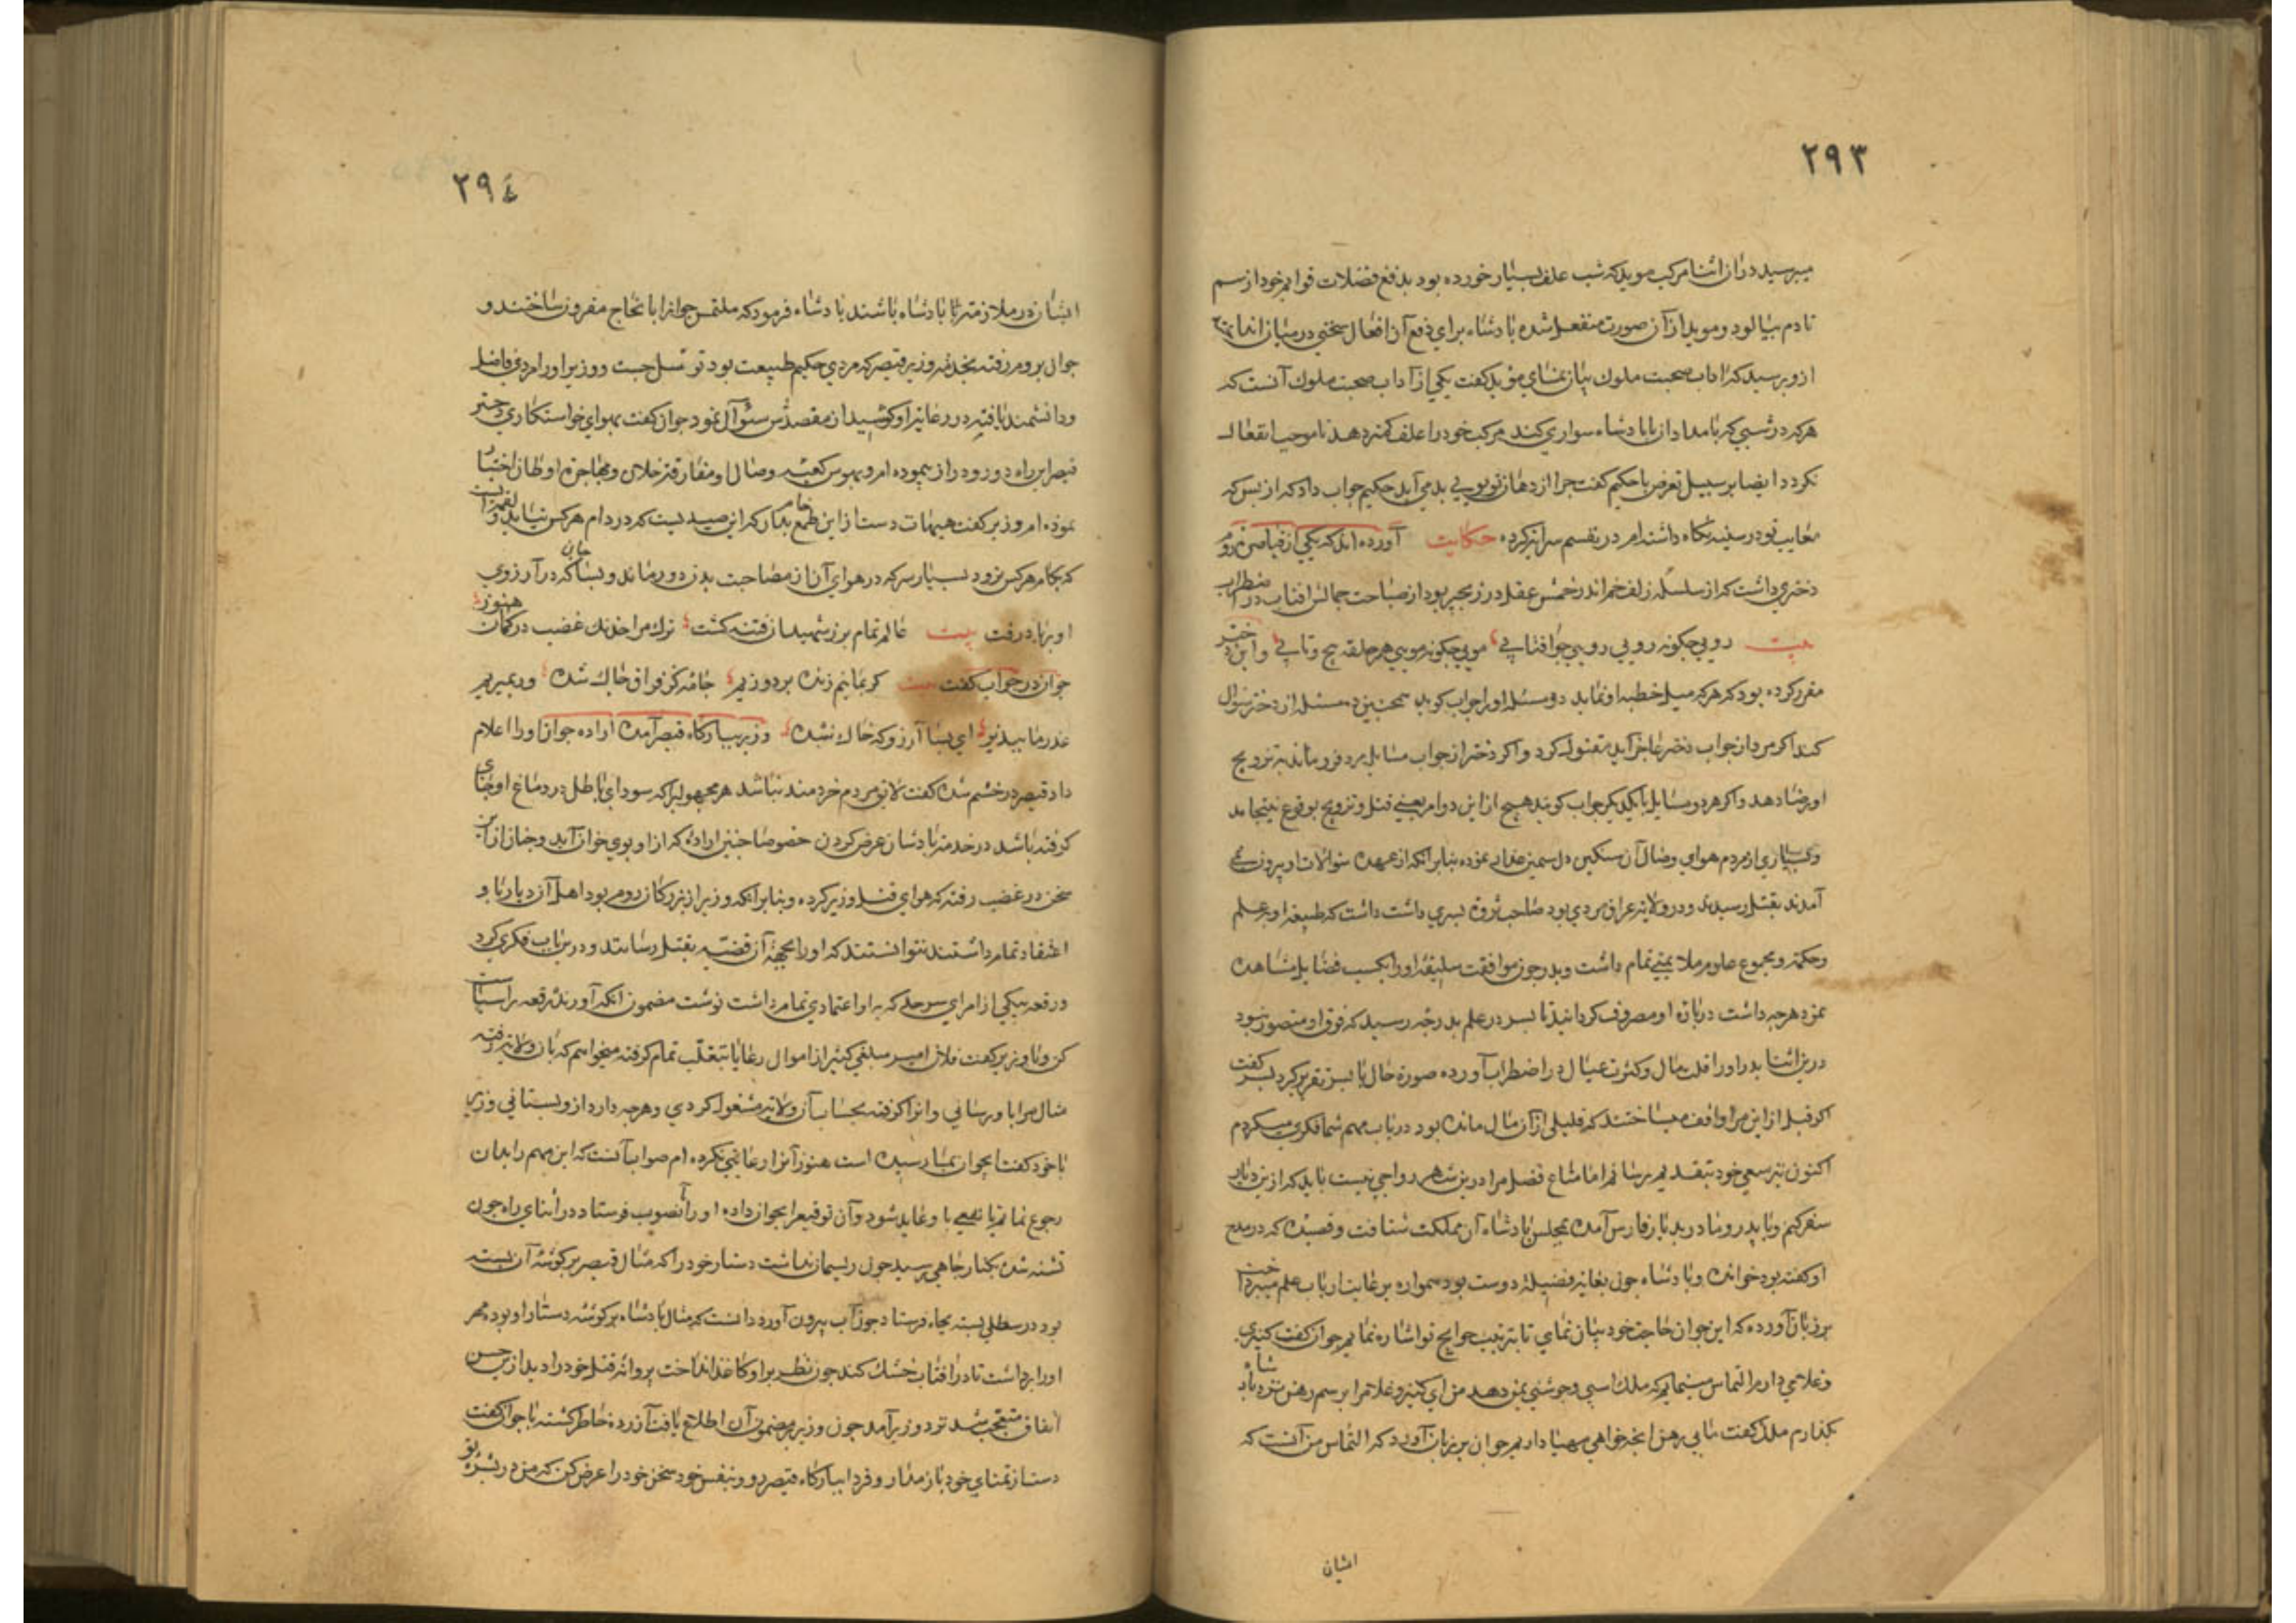 ۲۹۳
میرسید در ان اثنا مرکب موبد که شب علف بسیار خورده بود بدفع فضلات قوایم خود از سم
تا دم بیالود و موبد از آن صورت منفعل شده پادشاه برای دفع آن انفعال سخنی در میان انداخت
ازو پرسید که اداب صحبت ملوک بیان نمای موبد کفت یکی از آداب صحبت ملوک آنست که
هرکه در شبی که بامداد ان با پادشاه سواری کند مرکب خود را علف کمتر دهد تا موجب انفعال
نکردد ایضا بر سبیل تعرض با حکیم کفت چرا از دهان تو بویی بد می آید حکیم جواب داد که از بس که
معایب تو در سینه نکاه داشته ام در نفسم سرایة کرده حکایت آورده اند که یکی از قیاصره روم
دختری داشت که از سلسله زلف خم اندر خمش عقل در زنجیر بود از صباحت جمالش افتاب در اضطراب
بیت رویی چکونه رویی رویی چو افتابی مویی چکونه مویی هر حلقه پیچ و تابی و این دختر
مقرر کرده بود که هرکه میل خطبه او نماید دو مسئله او را جواب کوید همچنین ده مسئله از دختر سوال
کند اکر مرد از جواب دختر عاجز آید مقتول کردد و اکر دختر از جواب مسایل مرد فرو ماند به تزویج
او رضا دهد و اکر هر دو مسایل یکدیکر جواب کویند هیچ از این دو امر یعنی قتل و تزویج بوقوع نینجامد
و بسیاری از مردم هوای وصال آن سنکین دل سمین عذار نموده بنابر انکه از عهدۀ سوالات او بیرون نمی
آمدند بقتل رسیدند و در ولایة عراق مردی بود صاحب ثروة پسری داشت داشت که طبیعة او بر علم
وحکمة و مجموع علوم ملایمتی تمام داشت و پدر چون موافقت سلیقه او را بکسب فضایل مشاهده
نمود هرچه داشت در باره او مصروف کردانید تا پسر در علم بدرجه رسید که فوق او متصور نبود
درین اثنا پدر او را قلت مال و کثرت عیال در اضطراب آورده صورة حال با پسر تقریر کرد پسر کفت
اکر قبل از این مرا واقف میساختند که قلیلی از آن مال مانده بود در باب مهم شما فکری میکردم
اکنون نیز سعی خود بتقدیم برسانم اما متاع فضل مرا درین شهر رواجی نیست باید که از ین دیار
سفر کنیم و با پدر و مادر بدیار فارس آمده بمجلس پادشاه آن مملکت شتافت و قصیده که در مدح
او کفته بود خوانده و پادشاه چون بغایة فضیلة دوست بود همواره بر عایت ارباب علم میپرداخت
بر زبان آورده که این جوان حاجت خود بیان نمای تا بترتیب حوایج تو اشاره نمایم جوان کفت کنیزی
وغلامی دارم التماس مینمایم که ملک اسبی و جوشنی بمن دهد من ای کنیز و غلام را بر سم رهن نزد پادشاه
بکذارم ملک کفت بی رهن انچه خواهی مهیا داریم جوان بر زبان آورد که التماس من آنست که
ایشان
۲۹٤
ایشان در ملازمة پادشاه باشند پادشاه فرمود که ملتمس جوانرا بانجاح مقرون ساختند و
جوان بروم رفته بخدمة وزیر قیصر که مردی حکیم طبیعت بود توسل جست و وزیر او را مردی فاضل
و دانشمند یافته در رعایة او کوشید از مقصدش سئوال نمود جوان کفت بهوای خواستکاری دختر
قیصر این راه دور و دراز پیموده ام و بهوس کعبه وصال او مفارقة خلان و مهاجرة اوطان اختیار
نموده ام وزیر کفت هیهات دست از این طمع خام بدار که این صید یست که در دام هرکس نیاید و لقمه ایست
که بکام هرکس نرود بسیار سر که در هوای آن از مصاحبت بدن دور ماند و بسا جان که در آرزوی
او برباد رفت بیت عالم تمام بر ز شهیدان فتنه کشت ترک مرا خدنک غضب در کمان هنوز
جوان در جواب کفت بیت کر بمانیم زنده بر دوزیم جامه کز فراق چاک شده ور بمیریم
عذر ما بپذیر ای بسا آرزو که خاک شده وزیر ببارکاه قیصر آمده اراده جوان او را اعلام
داد قیصر در خشم شده کفت لایق مردم خردمند نباشد هر مجهولیرا که سودای باطل در دماغ او جای
کرفته باشد در خدمة پادشاهان عرض کردن خصوصا چنین اراده که از او بوی خوان آید و چنان از این
سخن در غضب رفته که هوای قتل وزیر کرده و بنابر انکه وزیر از بزرکان روم بود اهل آن دیار با و
اعتقاد تمام داشتند نتوانستند که او را بجهة آن قضیه بقتل رسانند و درین باب فکری کرد
و رقعه بیکی از امرای سرحد که به او اعتمادی تمام داشت نوشت مضمون انکه آورندۀ رقعه را سیاست
کن و با وزیر کفت فلان امیر مبلغی کثیر از اموال رعایا بتغلب تمام کرفته میخواهم که بآن ولایة رفته
مثال مرا باو رسانی و انرا کرفته بحساب آن ولایة مشغول کردی و هرچه دارد از و بستانی وزیر
با خود کفت این جوان بمن رسیده است هنوز آنرا رعایتی نکرده ام صواب آنست که این مهم را بدان
رجوع نمایم تا نفعی با و عاید شود و آن توقیع را بجوان داده او را بآنصوب فرستاد در اثنای راه چون
تشنه شده بکنار چاهی رسید چون ریسمان نداشت دستار خود را که مثال قیصر بر کوشۀ آن بسته
بود در سطلی بسته بچاه فرستاد چون آب بیرون آورد دانست که مثال پادشاه بر کوشه دستار او بود مهر
او را برداشت تا در افتاب خشک کند چون نظر بر او کاغذ انداخت پروانۀ قتل خود را دید از این حسن
اتفاق متعجب شد نزد وزیر آمد چون وزیر بر مضمون آن اطلاع یافت آزرده خاطر کشته با جوان کفت
دست از تمنای خود باز مدار و فردا ببارکاه قیصر رو و بنفس خود سخن خود را عرض کن که من در بشرۀ تو